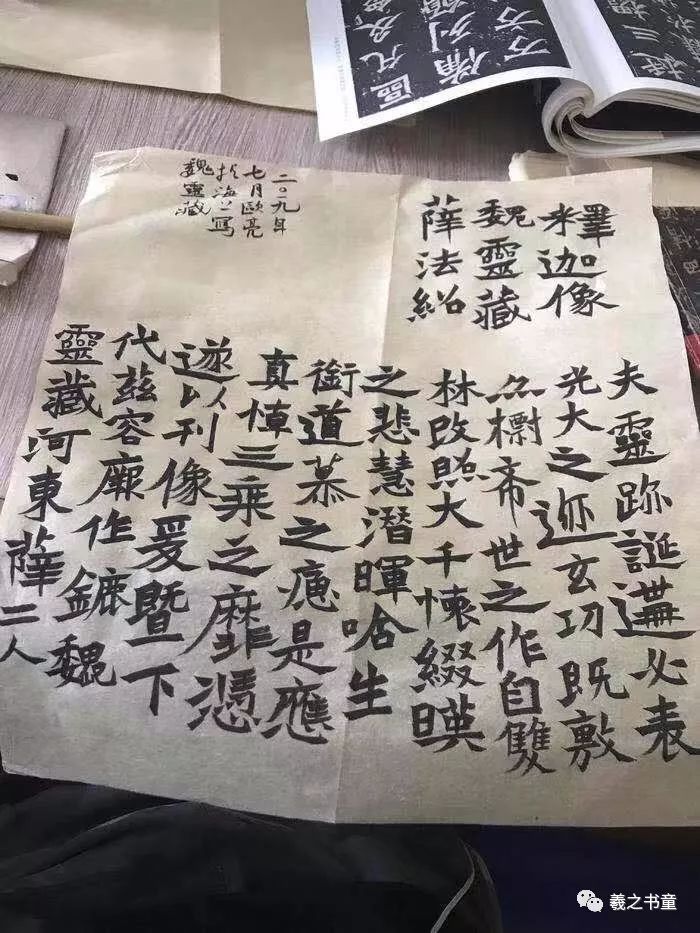 釋迦像
魏靈藏
薛法紹
夫靈跡誕遘必表
光大之迹玄功既敷
亦標希世之作自雙
林改照大千懷綴暎
之悲慧潛暉啥生
銜道慕之痛是應
真悼三乘之靡憑
遂以刊像爰暨下
代茲容厥作鏕魏
靈藏河東薛二人
二〇一九年
七月歐亮
於海上寫
魏靈藏
羲之书童